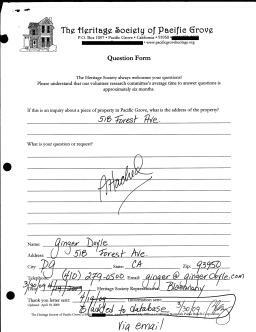 The Heritage Society of Pacific Grove
P.O. Box 1007 • Pacific Grove • California • 93950
• www.pacificgroveheritage.org
Question Form
The Heritage Society always welcomes your questions!
Please understand that our volunteer research committee's average time to answer questions is
approximately six months
If this is an inquiry about a piece of property in Pacific Grove, what is the address of the property?
518 Forest Ave.
What is your question or request?
Attached
Name: Ginger Doyle
Address: 518 Forest Ave.
City PG State: CA Zip: 93950
Telephone (410) 279-0500 Email: ginger@gingerdoyle.com
Heritage Society Representative
Thank you letter sent: 4/19/09 Information sent:
added to database 3/30/09
Via email